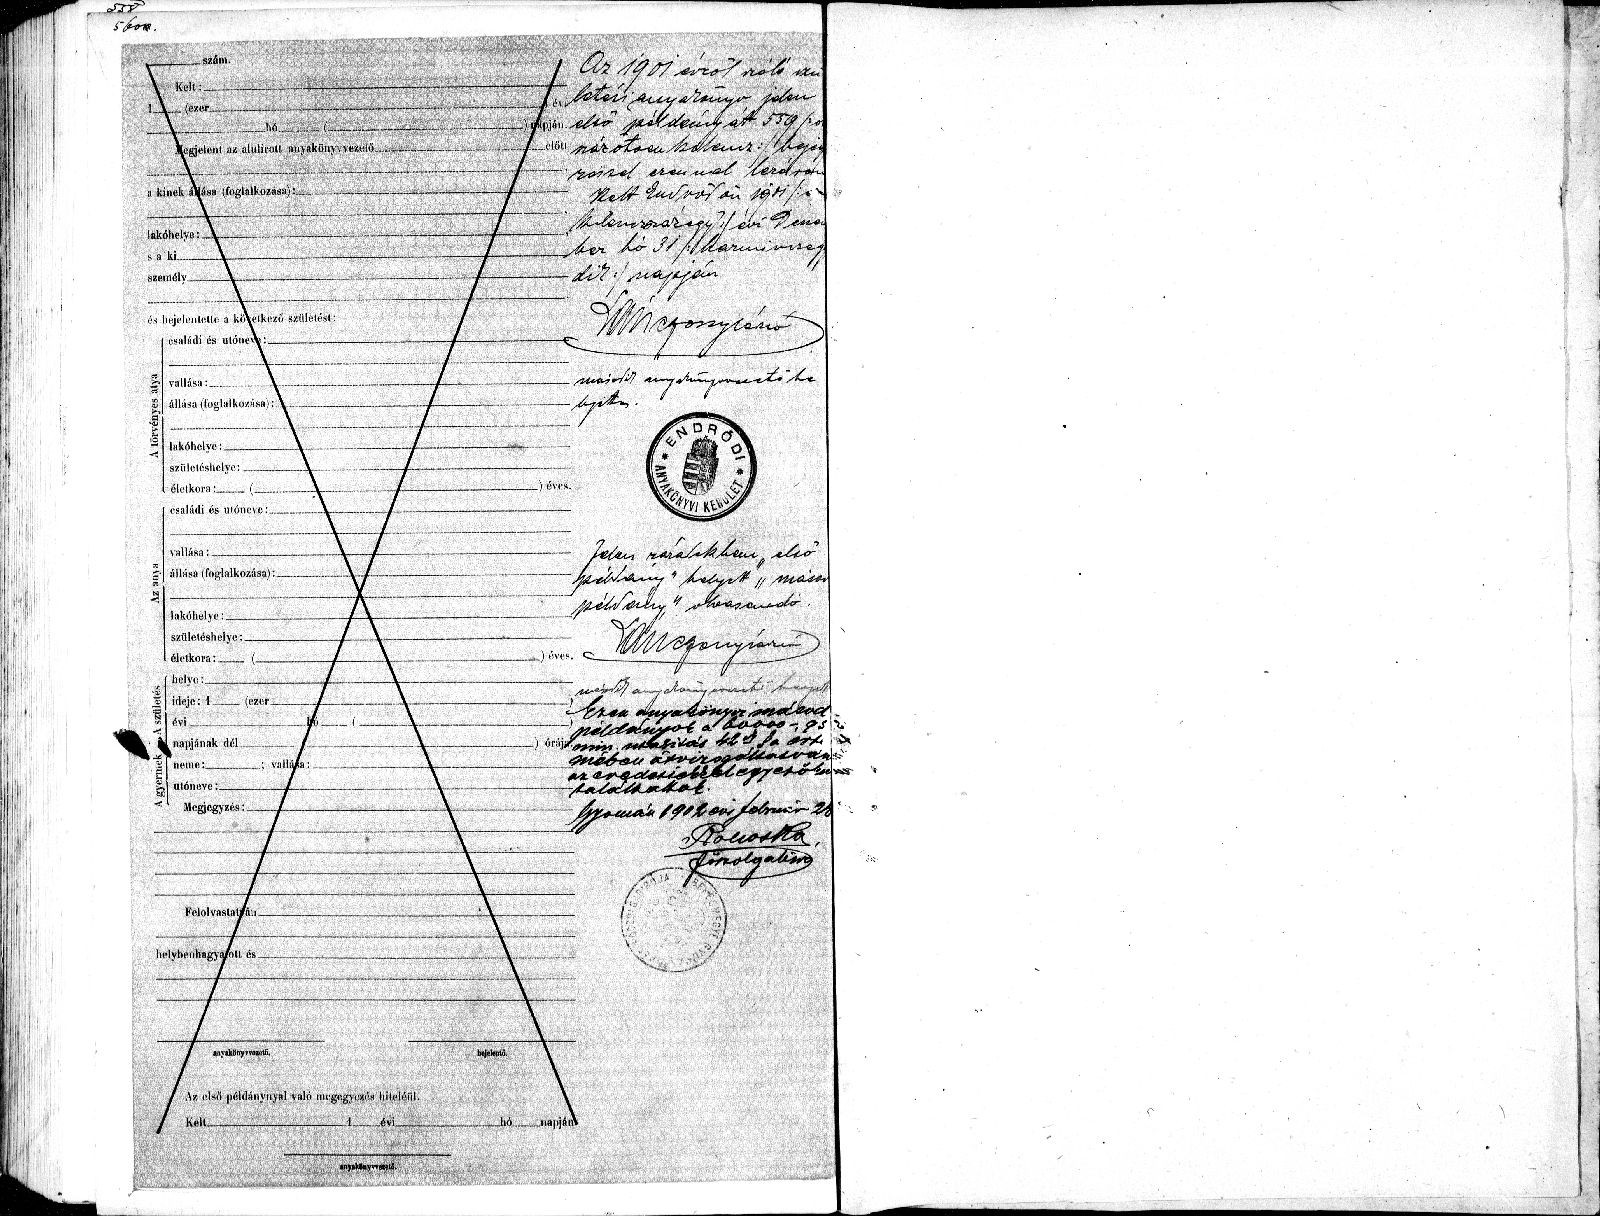 558
szám.
Kelt:
1 (ezer év
hó ( ) napján
Megjelent az alulirott anyakönyvvezető előtt
a kinek állása (foglalkozása):
lakóhelye:
s a ki
személy
és bejelentette a következő születést:
A törvényes atya
családi és utóneve:
vallása:
állása (foglalkozása):
lakóhelye:
születéshelye:
életkora: ( ) éves.
Az anya
családi és utóneve:
vallása:
állása (foglalkozása):
lakóhelye:
születéshelye:
életkora: ( ) éves.
A születés
helye:
ideje: 1 (ezer
évi hó (
napjának dél ) órája
A gyermek
neme: ; vallása:
utóneve:
Megjegyzés:
Felolvastatván
helybenhagyatott és
anyakönyvvezető. bejelentő.
Az első példánynyal való megegyezés hiteléül.
Kelt 1 évi hó napján
anyakönyvvezető.
Az 1901 évről szóló szü
letési anyakönyv jelen
első példányát 559
rással ezennel lezárom
Kelt Endrődön 1901
kilenczszázegy :/ évi Decem
ber hó 31 /: Harminczegy
dik :/ napján
másod anyakönyvvezető he
lyettes.
ENDRŐDI
ANYAKÖNYVI KERÜLET
Jelen záradékban „első
példány" helyett „másod
példány" olvasandó.
másod anyakönyvvezető helyett
Ezen anyakönyvi másod
példányot a
az eredetivel megegyezőnek
találtatott
Gyomán 1902 évi február 28
főszolgabíró